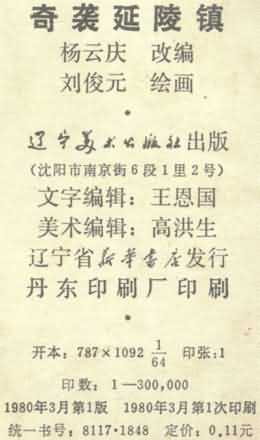 奇袭延陵镇
杨云庆 改编
刘俊元 绘画
•
辽宁美术出版社出版
(沈阳市南京街6段1里2号)
文字编辑：王恩国
美术编辑：高洪生
辽宁省新华书店发行
丹东印刷厂印刷
•
开本：787×1092 1/64 印张：1
印数：1—300,000
1980年3月第1版 1980年3月第1次印刷
统一书号：8117·1848 定价：0.11元